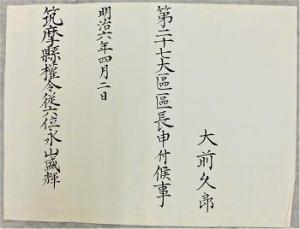 大前久郎
第二十七大區區長申付候事
明治六年四月二日
筑摩縣權令從六位永山盛輝